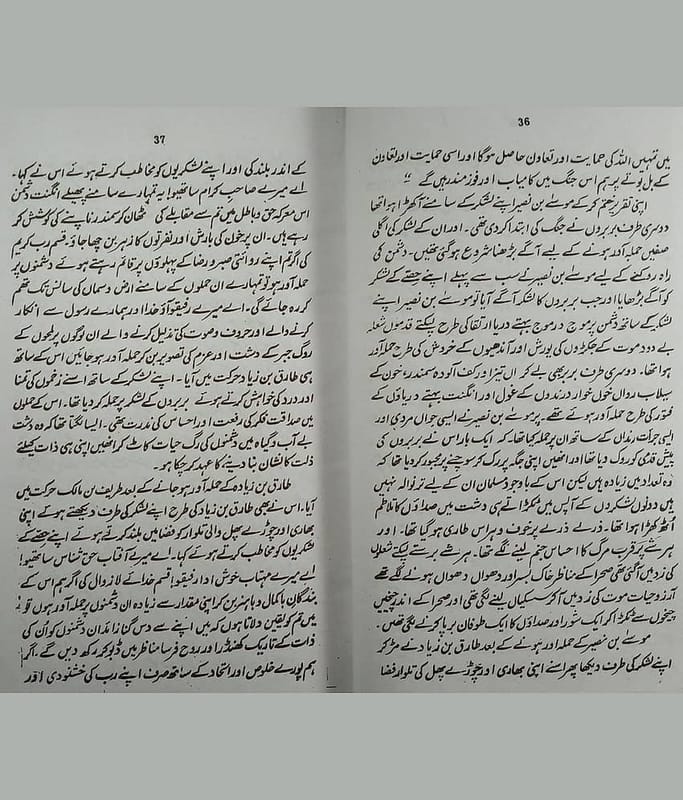 36
میں تمہیں اللہ کی حمایت اور تعاون حاصل ہوگا اور اسی حمایت اور تعاون
کے بل بوتے پر ہم اس جنگ میں کامیاب اور فوز مند رہیں گے "
اپنی تقریر ختم کر کے موسٰے بن نصیر اپنے لشکر کے سامنے آ کھڑا ہوا تھا
دوسری طرف بربروں نے جنگ کی ابتداء کر دی تھی۔ اور ان کے لشکر کی اگلی
صفیں حملہ آور ہونے کے لیے آگے بڑھنا شروع ہو گئی تھیں۔ دشمن کی
راہ روکنے کے لیے موسٰے بن نصیر نے سب سے پہلے اپنے حصے کے لشکر
کو آگے بڑھایا اور جب بربروں کا لشکر آگے آیا تو موسٰے بن نصیر اپنے
لشکر کے ساتھ دشمن پر موج در موج بہتے دریا ارتقا کی طرح لپکتے قدموں شعلہ
بے دود موت کے جھکڑوں کی یورش اور آندھیوں کے خروش کی طرح حملہ آور
ہوا تھا۔ دوسری طرف بربر بھی بے کراں تیز اور کف آلودہ سمندر، خون کے
سیلاب رواں خول خوار درندوں کے غول اور انگنت بہتے دریاؤں کے
کی طرح حملہ آور ہوئے تھے۔ پر موسٰے بن نصیر نے ایسی جواں مردی اور
ایسی جرات رندان کے ساتھ ان پر حملہ کیا تھا۔ کہ ایک بار اس نے بربروں کی
پیش قدمی کو روک دیا تھا اور انھیں اپنی جگہ پر رک کر سوچنے پر مجبور کر دیا تھا کہ
وہ تعداد میں زیادہ ہیں لیکن اس کے باوجود مسلمان ان کے لیے تر نوالہ نہیں
ہیں دونوں لشکروں کے آپس میں ٹکڑا تے ہی دشت میں صداؤں کا تلاطم
اٹھ کھڑا ہوا تھا۔ ذرے ذرے پر خوف و ہراس طاری ہو گیا تھا۔ اور
ہر شئے پر قرب مرگ کا احساس جنم لینے لگے تھا۔ ہر شئے برستے لپکتے شعلوں
کی زد میں آ گئی تھی صحرا کے مناظر خاک بسر اور دھواں دھواں ہونے لگے تھے
آرزوِ حیات موت کی زد میں آ کر سسکیاں لینے لگی تھی اور صحرا کے اندر چیخیں
چیخوں سے ٹکڑا کر ایک شور اور صداؤں کا ایک طوفان برپا کرنے لگی تھیں۔
موسٰے بن نصیر کے حملہ اور ہونے کے بعد طارق بن زیاد نے مڑ کر
اپنے لشکر کی طرف دیکھا پھر اسنے اپنی بھاری اور چوڑے پھل کی تلوار فضا
37
کے اندر بلند کی اور اپنے لشکریوں کو مخاطب کرتے ہوئے اس نے کہا۔
اے میرے صاحبِ کرام ساتھیو! یہ تمہارے سامنے پھیلے انگنت دشمن
اس معرکہ حق و باطل میں تم سے مقابلے کی ٹھان کو سمندر ناپنے کی کوشش کر
رہے ہیں۔ ان پر خون کی بارش اور نفرتوں کا زہر بن چھا جاؤ۔ قسم رب کریم
کی اگر تم اپنے روائتی صبر و رضا کے پہلوؤں پر قائم رہتے ہوئے دشمنوں پر
حملہ آور ہو تو تمہارے ان حملوں کے سامنے ارض و سماں کی سانس تک تھم
کر رہ جائے گی۔ اے میرے رفیقو! آؤ خدا اور ہمارے رسول سے انکار
کرنے والے اور حروف و صوت کی تذلیل کرنے والے ان لوگوں پر لمحوں کے
روگ جبر کے دشت اور عزم کی تصویر بن کر حملہ آور ہو جائیں اس کے ساتھ
ہی طارق بن زیاد حرکت میں آیا۔ اپنے لشکر کے ساتھ اسنے زخموں کی تمنا
اور درد کی خواہش کرتے ہوئے بربروں کے لشکر پر حملہ کر دیا تھا۔ اس کے حملوں
میں صداقت فکر کی رفعت اور احساس کی ندرت تھی۔ ایسا لگتا تھا کہ وہ دشت
بے آب و گیاہ میں دشمنوں کی رگ حیات کاٹ کر انھیں اپنی ہی ذات کیلئے
ذلت کا نشان بنا دینے کا عہد کر چکا ہو۔
طارق بن زیادہ کے حملہ آور ہو جانے کے بعد طریف بن مالک حرکت میں
آیا۔ اس نے بھی طارق بن زیاد کی طرح اپنے لشکر کی طرف دیکھتے ہوئے اپنی
بھاری اور چوڑے پھل والی تلوار کو فضا میں بلند کرتے ہوئے اپنے حصے کے
لشکریوں کو مخاطب کرتے ہوئے کہا۔ اے میرے آفتاب حق شناس ساتھیو!
اے میرے مہتاب خوش ادا رفیقو! قسم خدائے لازوال کی اگر ہم اس کے
بندگان باکمال و باہنر بن کر اپنی مقدار سے زیادہ ان دشمنوں پر حملہ آور ہوں تو
میں تم کو یقین دلاتا ہوں کہ ہیں اپنے سے دس گنا زائد ان دشمنوں کو اُن کی
ذات کے تاریک کھنڈر اور روح فرسا مناظر میں ڈبو کر رکھ دیں گے، اگر
ہم پورے خلوص اور اتحاد کے ساتھ صرف اپنے رب کی خشنودی اور